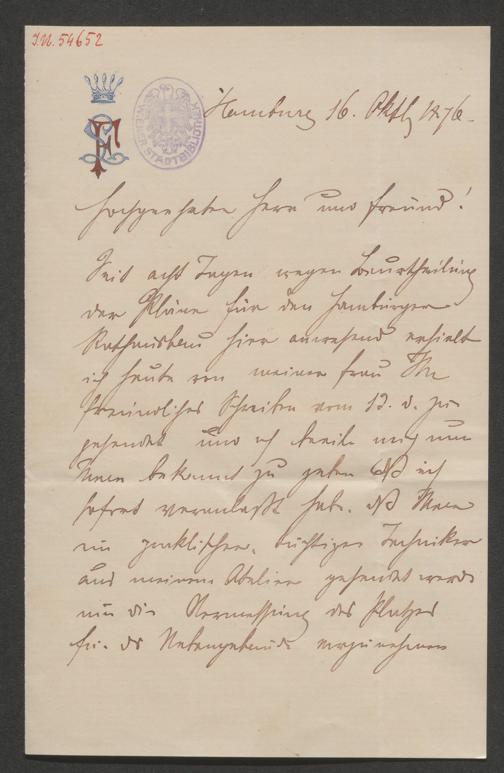 I.N. 54652
WIENER STADTBIBLIOTHEK
Hamburg 16. Oktb 1876.
Hochgeehrter Herr und Freund!
Seit acht Tagen wegen Beurtheilung
der Pläne für den Hamburger
Rathausbau hier anwesend erhielt
ich heute von meiner Frau Ihr
freundliches Schreiben vom 13. d. zu-
gesendet und ich beeile mich nun
Ihnen bekannt zu geben daß ich
sofort veranlaßt habe, daß Ihnen
ein praktischer, tüchtiger Techniker
aus meinem Atelier gesendet werde
um die Vermessung des Platzes
für das Nebengebäude vorzunehmen